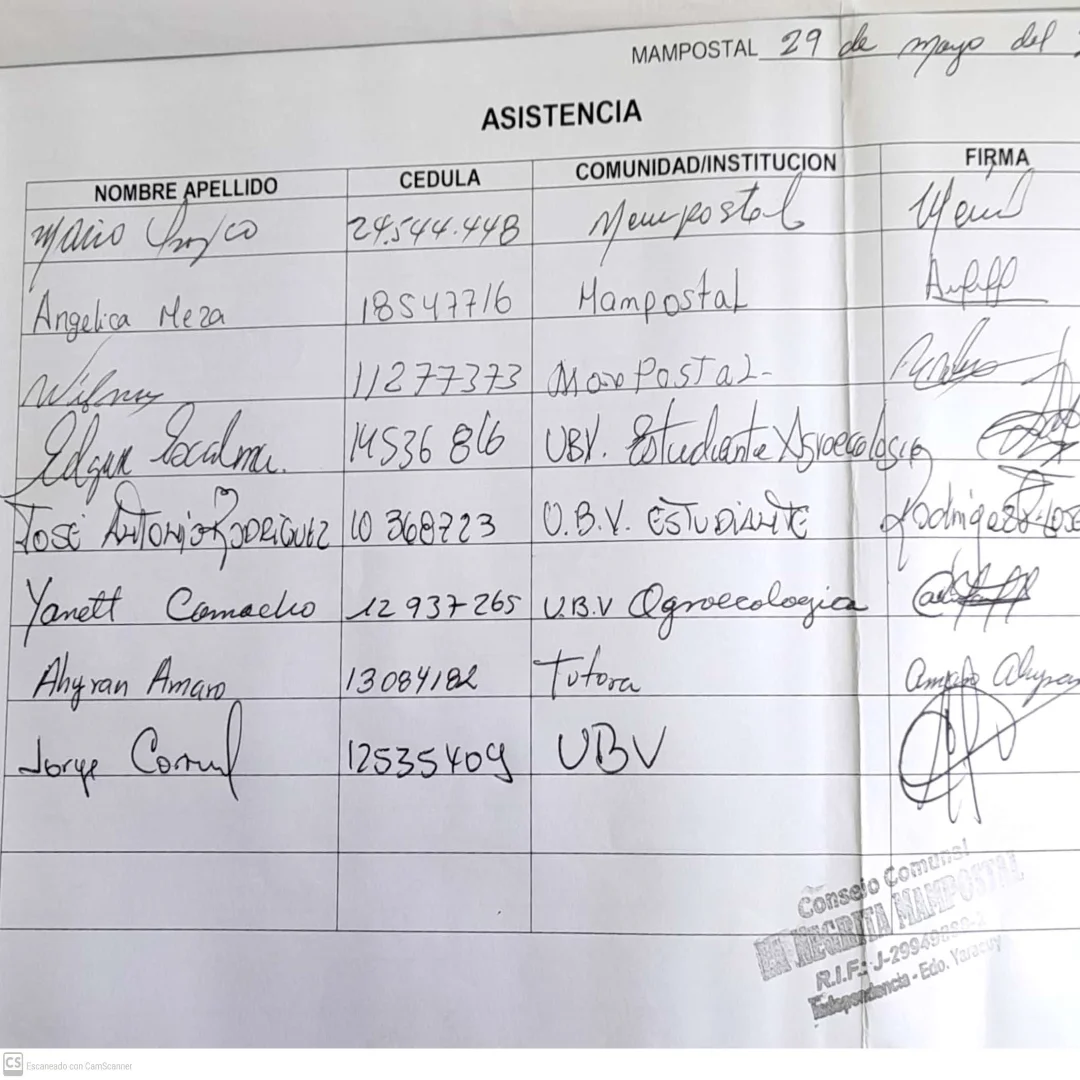 MAMPOSTAL 29 de mayo del
ASISTENCIA
NOMBRE APELLIDO CEDULA COMUNIDAD/INSTITUCION FIRMA
Mario 24.544.448 Mampostal
Angelica Meza 18547716 Mampostal
Wilmer 11277373 Mampostal
Edgar Escalona. 14536 816 UBV. Estudiante Agroecologia
JOSÉ ANTONIO RODRIGUEZ 10 368723 U.B.V. ESTUDIANTE Rodriguez JOSE
Yanett Camacho 12 937 265 U.B.V Agroecologica
Ahyran Amaro 13084182 Tutora Amaro Ahyran
Jorge 12535409 UBV
Consejo Comunal
LA NEGRITA MAMPOSTAL
R.I.F.: J-29949
Independencia - Edo. Yaracuy
CS Escaneado con CamScanner